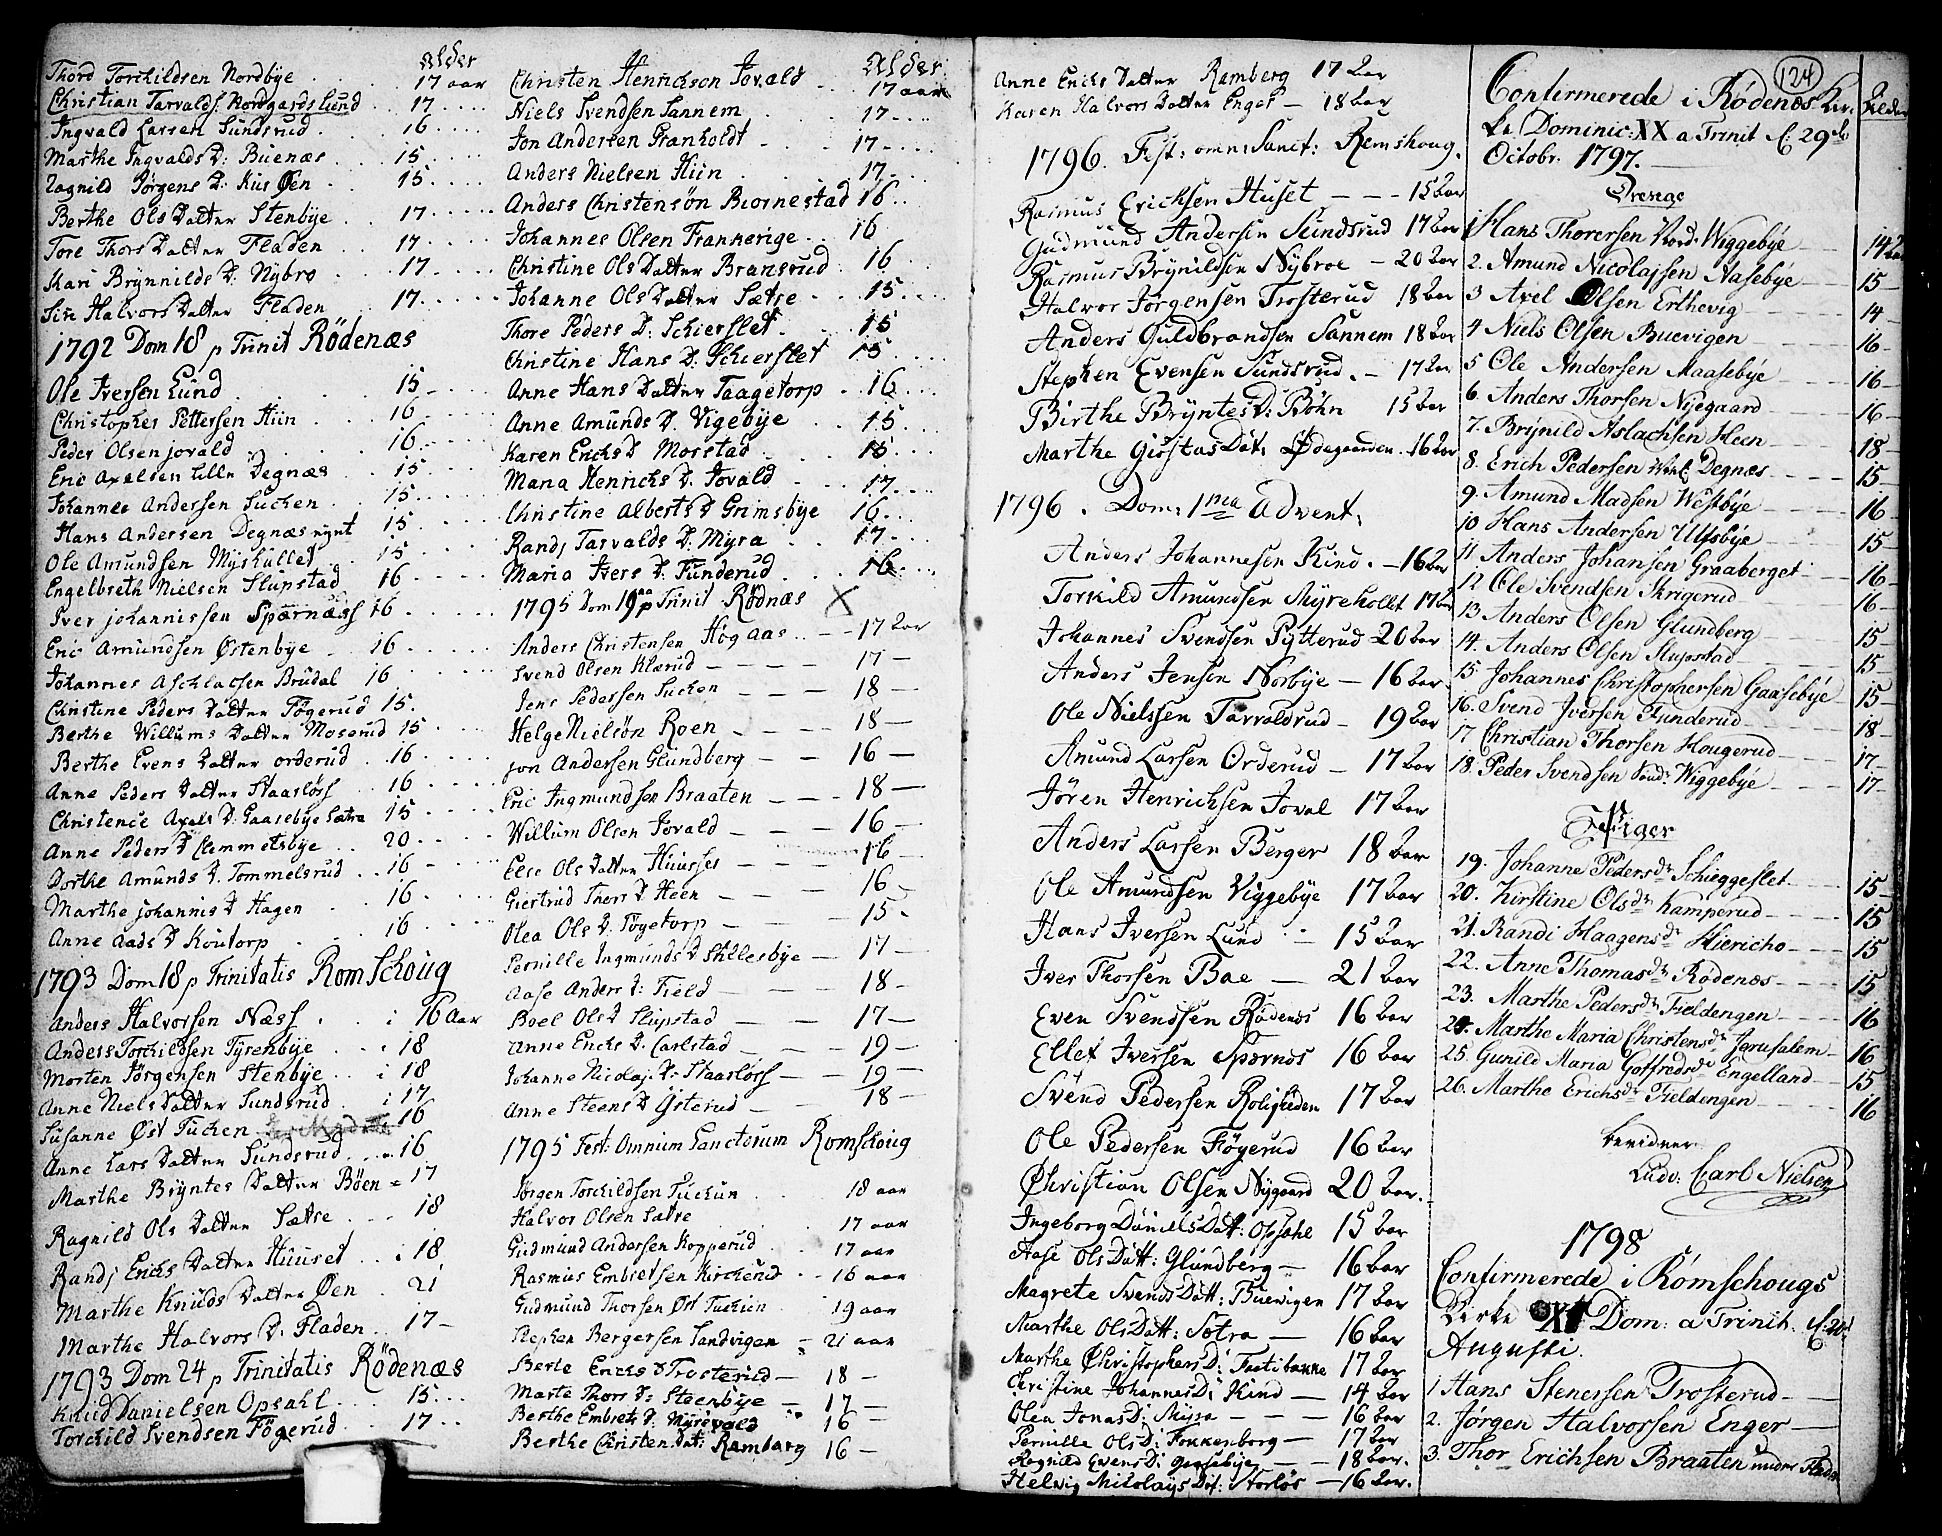 alder
Thord Torchildsen Nordbye 17 aar
Christian Tarvalds: Nordgards Lund 17
Ingvald Larsen Sundsrud 16
Marthe Ingvalds D: Buenæs 15
Ragnild Jørgens D: Hus Øen 15
Berthe Ols Datter Stenbye 17
Tore Thors Datter Fladen 17
Kari Brynnilds D: Nybro 17
Siri Halvors Datter Fladen 17
1792 Dom 18 p Trinit Rödenæs
Ole Iversen Lund 15
Christopher Pettersen Hiin 16
Peder Olsen jovald 16
Eric Axelsen Lille Degnæs 15
Johannes Andersen Tucken 15
Hans Andersen Degnæs nynt 15
Ole Amundsen Myshüllet 15
Engelbreth Nielsen Slupstad 16
Iver johannissen Spernæss 16
Eric Amundsen Østenbye 16
Johannes Aschlacsen Brudal 16
Christine Peders Datter Fögerud 15
Berthe Willums Datter Moserud 15
Berthe Evens Datter orderud 16
Anne Peders Datter Staarlöss 16
Christence Axels D: Gaasebye Sætra 15
Anne Peders D Clemmetsbye 20
Dorthe Amunds D. Tommelsrud 16
Marthe johannis D Hagen 16
Anne Aads D Koutorp 16
1793 Dom 18 p Trinitatis Romschoug
Anders Halvorsen Næss 16 aar
Anders Torchildsen Tyrenbye 18
Morten Jörgensen Stenbye 18
Anne Niels Datter Sundsrud 17
Susanne Øst Tucken 16
Anne Lars Datter Sundsrud 16
Marthe Bryntes Datter Böen 17
Ragnild Ols Datter Sætre 18
Randj Erichs Datter Huuset 18
Marthe Knuds Datter Øen 21
Marthe Halvors D: Fladen 17
1793 Dom 24 p Trinitatis Rödenæs
Knud Danielsen Opsahl 15
Torchild Svendsen Fögerud 17
alder
Christen Henrichsen Jovald 17 aar
Niels Svendsen Sannem 17
Jon Andersen Franholdt 17
Anders Nielsen Hiin 17
Anders Christensøn Biornestad 16
Johannes Olsen Frankerige 16
Christine Ols Datter Bransrud 16
Johanne Ols Datter Sætre 15
Thore Peders D: Schierslet 15
Christine Hans D: Schierslet 15
Anne Hans Datter Taagetorp 16
Anne Amunds D. Vigebye 15
Karen Erichs D Morstad 15
Maria Henrichs D. Jovald 17
Christine Alberts D Grimsbye 16
Randj Tarvalds D: Myra 17
Maria Ivers D: Funderud 16
1795 Dom 19 p Trinit Rödnæs X
Anders Christensen Högaas 17 aar
Svend Olsen Klærud 17
Jens Pedersen Tucken 18
Helge Nielsön Roen 18
jon Andersen Glundberg 16
Eric Ingmundsen Braaten 18
Willum Olsen Jovald 16
Else Ols Datter Huuses 16
Giertrud Thors D Heen 16
Olea Ols D: Tögetorp 15
Pernille Ingmunds D Stillesbye 17
Aase Anders D: Field 18
Boel Ols D Slupstad 17
Anne Erichs D: Carlstad 19
Johanne Nicolaj D: Staarlöss 19
Anne Steens D Österud 18
1795 Fest: Omnium Sanctorum Romschoug
Jørgen Torchildsen Tuckun 18 aar
Halvor Olsen Satre 17 aar
Gudmund Andersen Kopperud 17 aar
Rasmus Embretsen Kirkerud 16 aar
Gudmund Thorsen Øst Tuckin 19 aar
Stephen Bergersen Sandvigen 21 aar
Berte Erichs D Trosterud 18
Marte Thors D: Steenbye 17
Berthe Embrets D. Myrevold 16
Berthe Christen: Dat: Ramberg 16
Anne Erichs Datter Ramberg 17 aar
Karen Halvors Datter Enger 18 aar
1796. Fest: omn: Sanct: Remskoug.
Rasmus Erichsen Huset 15 aar
Gudmund Andersen Sundsrud 17 aar
Rasmus Brynildsen Nybroe 20 aar
Halvor Jørgensen Trosterud 18 aar
Anders Guldbrandsen Sannem 18 aar
Stephen Evensen Sundsrud 17 aar
Birthe Bryntes D: Bøhn 15 aar
Marthe Giøstas Dat: Ødegaarden 16 aar
1796. Dom: 1ma Advent:
Anders Johannesen Kind 16 aar
Torkild Amundsen Myreholtt 17 aar
Johannes Svendsen Pytterud 20 aar
Anders Jensen Norbye 16 aar
Ole Nielssen Tarvaldrud 19 aar
Amund Larsen Orderud 17 aar
Jören Henrichsen Joval 17 aar
Anders Larsen Berger 18 aar
Ole Amundsen Viggebye 17 aar
Hans Iversen Lund 15 aar
Iver Thorsen Bae 21 aar
Even Svendsen Rødenæs 16 aar
Ellef Iversen Spærnæs 16 aar
Svend Pedersen Roligheden 17 aar
Ole Pedersen Føgerud 16 aar
Christian Olsen Nygaard 20 aar.
Ingeborg Daniels Datt: Opsahl 15 aar
Aase Ols Datt: Glundberg 16 aar
Magrete Svends Datt: Buevigen 17 aar
Marthe Ols Datt: Sætra 16 aar
Marthe Christophers D: Fastibakke 17 aar
Christine Johannes D: Kind 14 aar
Olea Jonas D: Myra 16 aar
Pernille Ols D: Fokkenborg 17 aar
Ragnild Evens D: Gaasebye 18 aar.
Helvig Nikolays Dat: Storløs 16 aar.
124
Confirmerede i Rødenæs Kir: Alder
Ao Dominic: XX a Trinit d: 29de
Octobr. 1797.
Drenge
1 Hans Thorersen Nord: Wiggebye 14 aar
2. Amund Nicolajsen Aasebye 15
3 Axel Olsen Ertevig 14
4 Niels Olsen Buevigen 16
5 Ole Andersen Maasebye 16
6. Anders Thorsen Nyegaard 16
7. Brynild Aslachsen Heen 18
8. Erich Pedersen Degnæs 15
9. Amund Madsen Westbye 16
10 Hans Andersen Ulfsbye 15
11 Anders Johansen Graaberget 16
12 Ole Svendsen Skrigerud 16
13. Anders Olsen Glundberg 15
14. Anders Olsen Slupstad 15
15 Johannes Christophersen Gaasebye 15
16. Svend Iversen Funderud 18
17. Christian Thorsen Hougerud 17
18. Peder Svendsen Sond: Wiggebye 17
Piger
19. Johanne Pedersdr Schieggeslet 15
20. Kirstine Olsdr Kamperud 15
21. Randi Haagensdr Hiericho 15
22. Anne Thomasdr Rødenæs 15
23. Marthe Pedersdr Fieldengen 16
24. Marthe Maria Christensdr Jerusalem 16
25. Gunild Maria Goffredsdr Engelland 15
26. Marthe Erichsdr Fieldengen 16
bevidner
Ludv: Carl Nielsen
1798
Confirmerede i Rømschougs
Kirke XI Dom: a Trinit.
Augusti.
1 Hans Stenersen Trosterud
2. Jørgen Halvorsen Enger
3. Thor Erichsen Braaten under